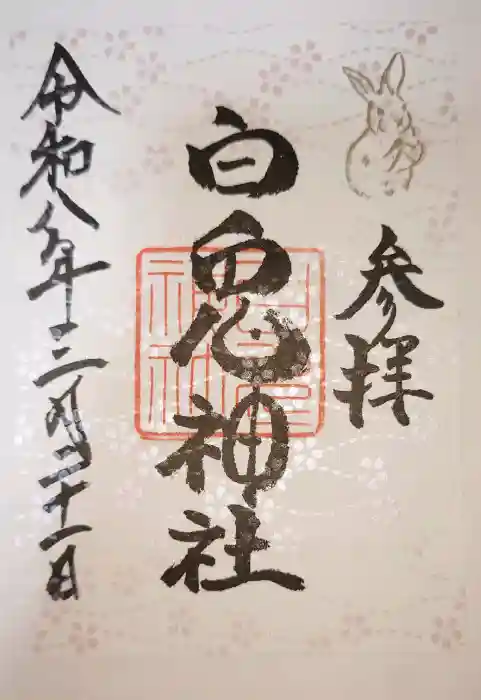 参拝
白兎神社
令和八年三月二十一日